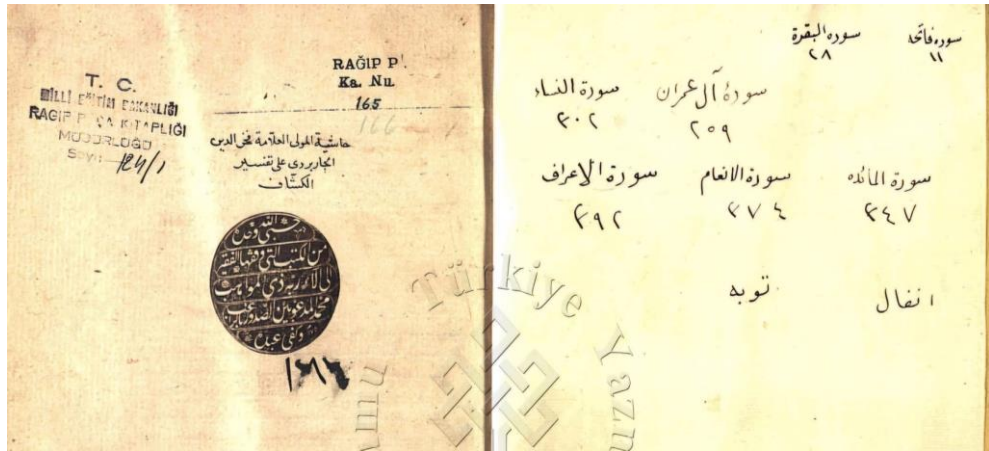 T. C.
MİLLİ EĞİTİM BAKANLIĞI
RAGIP PAŞA KİTAPLIĞI
MÜDÜRLÜĞÜ
Sayı: 124/1
RAĞIP P.
Ka. Nu.
165
166
حاشية المولى العلامة فخر الدين
الجاربردى على تفسير
الكشاف
حسبي الله وحده
من الكتب التي وقفها الفقير
الى آلاء ربه ذي المواهب
محمد المدعو بين الصدور براغب
وكفى عبده
سوره فاتحة
١١
سوره البقرة
٢٨
سورة آل عمران
٢٥٩
سورة النساء
٣٠٢
سورة المائده
٣٤٧
سورة الانعام
٣٧٤
سورة الاعراف
٣٩٢
انفال
توبه
Türkiye Yazm